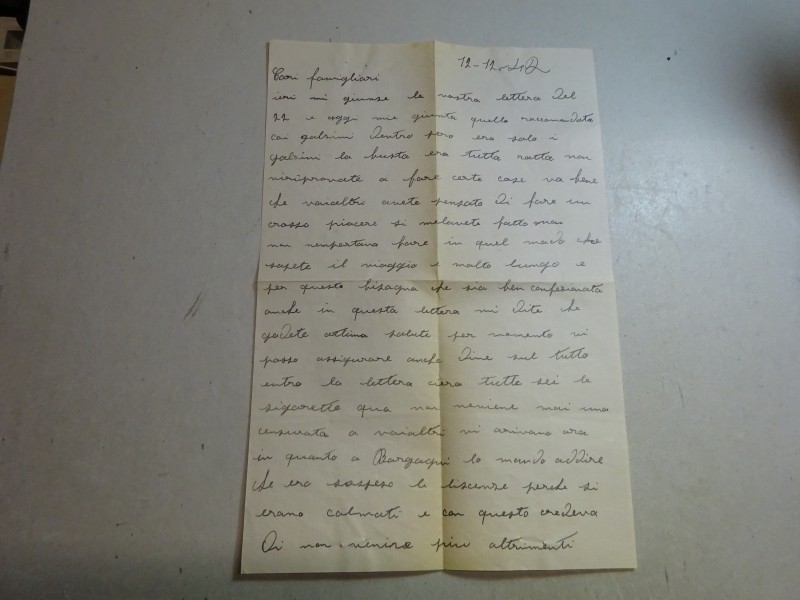 12-12-42
Cari famigliari
ieri mi giunse la vostra lettera del
22 e oggi mie giunta quella racomandata
coi galsini dentro pero era solo i
galsini la busta era tutta rotta non
a fare certe case va bene
che voialtri avete pensato di fare un
grosso piacere si melavete fatto ma
non nenportava fare in quel modo che
sapete il viaggio e molto lungo e
per questo bisogna che sia ben confesionata
anche in questa lettera mi dite che
godete ottima salute per momento vi
posso assigurare anche dime sul tutto
entro la lettera ciera tutte sei le
sigarette qua non neviene mai una
censurata a voialtri vi arivano ora
in quanto a Bargagni lo mando addire
che era sospeso le liscenze perche si
erano calmati e con questo credeva
di non venire piu altrimenti